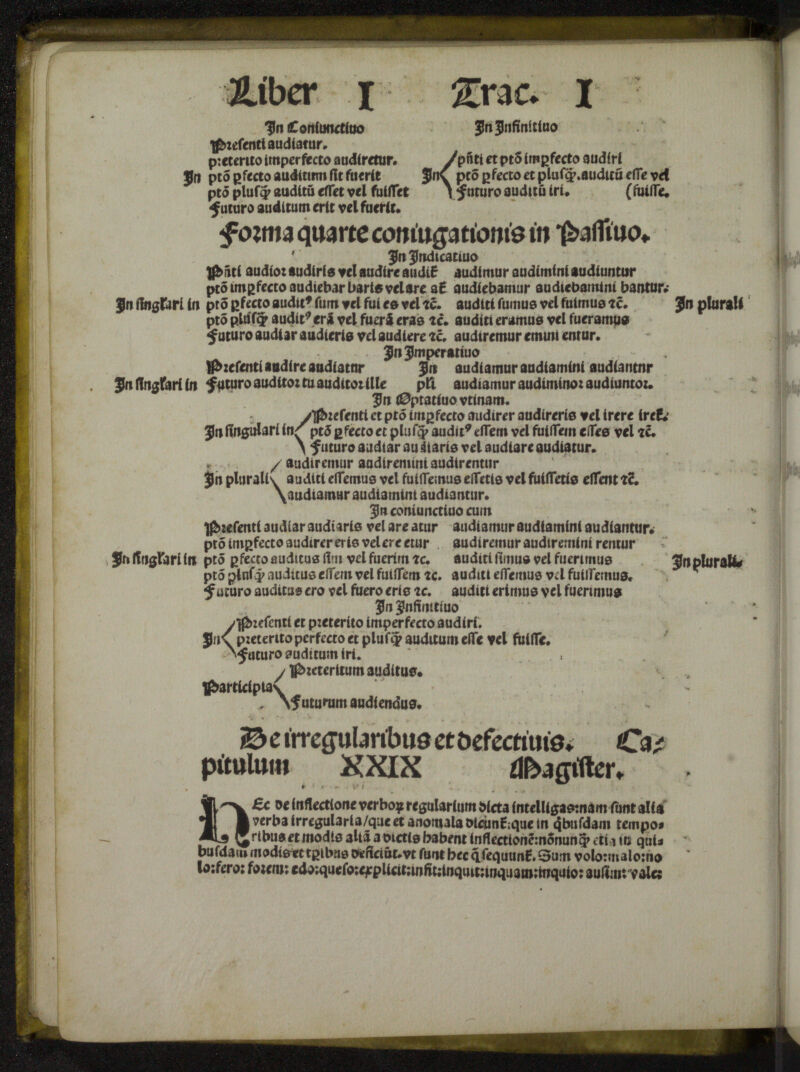 Liber I Trac. I
In Coniunctiuo In Infinitiuo
Presenti audiatur.
preterito imperfecto audiretur. pñti et ptō imꝑfecto audiri
In ptō ꝑfecto auditum sit fuerit In ptō ꝑfecto et plusꝙ̃.auditū esse vel
ptō plusꝙ̃ auditū esset vel fuisset Futuro auditū iri. (fuisse.
Futuro auditum erit vel fuerit.
Forma quarte coniugationis in Passiuo.
In Indicatiuo
Pñti audior audiris vel audire audit̃ audimur audimini audiuntur
ptō imꝑfecto audiebar baris vel are at̃ audiebamur audiebamini bantur.
In singl'ari in ptō ꝑfecto audit⁹ sum vel fui es vel ⁊c̃. auditi sumus vel fuimus ⁊c̃. In plurali
ptō plusꝙ̃ audit⁹ erā vel fuerā eras ⁊c̃. auditi eramus vel fueramus
Futuro audiar audieris vel audiere ⁊c̃. audiremur emini entur.
In Imperatiuo
Presenti audire audiatnr In audiamur audiamini audiantnr
In singl'ari in Futuro auditor tu auditor ille pl'i audiamur audiminor audiuntor.
In Optatiuo vtinam.
Presenti et ptō imꝑfecto audirer audireris vel irere iret̃.
In singulari in ptō ꝑfecto et plusꝙ̃ audit⁹ essem vel fuissem esses vel ⁊c̃.
Futuro audiar audiaris vel audiare audiatur.
audiremur audiremini audirentur
In plurali auditi essemus vel fuissemus essetis vel fuissetis essent ⁊c̃.
audiamur audiamini audiantur.
In coniunctiuo cum
Presenti audiar audiaris vel are atur audiamur audiamini audiantur.
ptō imꝑfecto audirer eris vel ere etur audiremur audiremini rentur
In singl'ari in ptō ꝑfecto auditus sim vel fuerim ⁊c. auditi simus vel fuerimus In plurali
ptō plusꝙ̃ auditus essem vel fuissem ⁊c. auditi essemus vel fuissemus.
Futuro auditus ero vel fuero eris ⁊c. auditi erimus vel fuerimus
In Infinitiuo
Presenti et preterito imperfecto audiri.
In preterito perfecto et plusꝙ̃ auditum esse vel fuisse.
Futuro auditum iri.
Preteritum auditus.
Participia
Futurum audiendus.
De irregularibus et defectiuis. Ca⸗
pitulum XXIX Magister.
HEc de inflectione verboꝝ regularium dicta intelligas:nam sunt alia
verba irregularia/que et anomala dicunt̃:que in q̃busdam tempo⸗
ribus et modis aliā a dictis habent inflectionē:nōnunꝙ̃ etiā in qui⸗
busdam modis et tꝑibus deficiūt.vt sunt hec q̃ sequunt̃. Sum volo:malo:no
lo:fero: forem: edo:queso:explicit:infit:inquit:inquam:inquio: ausim: vale: